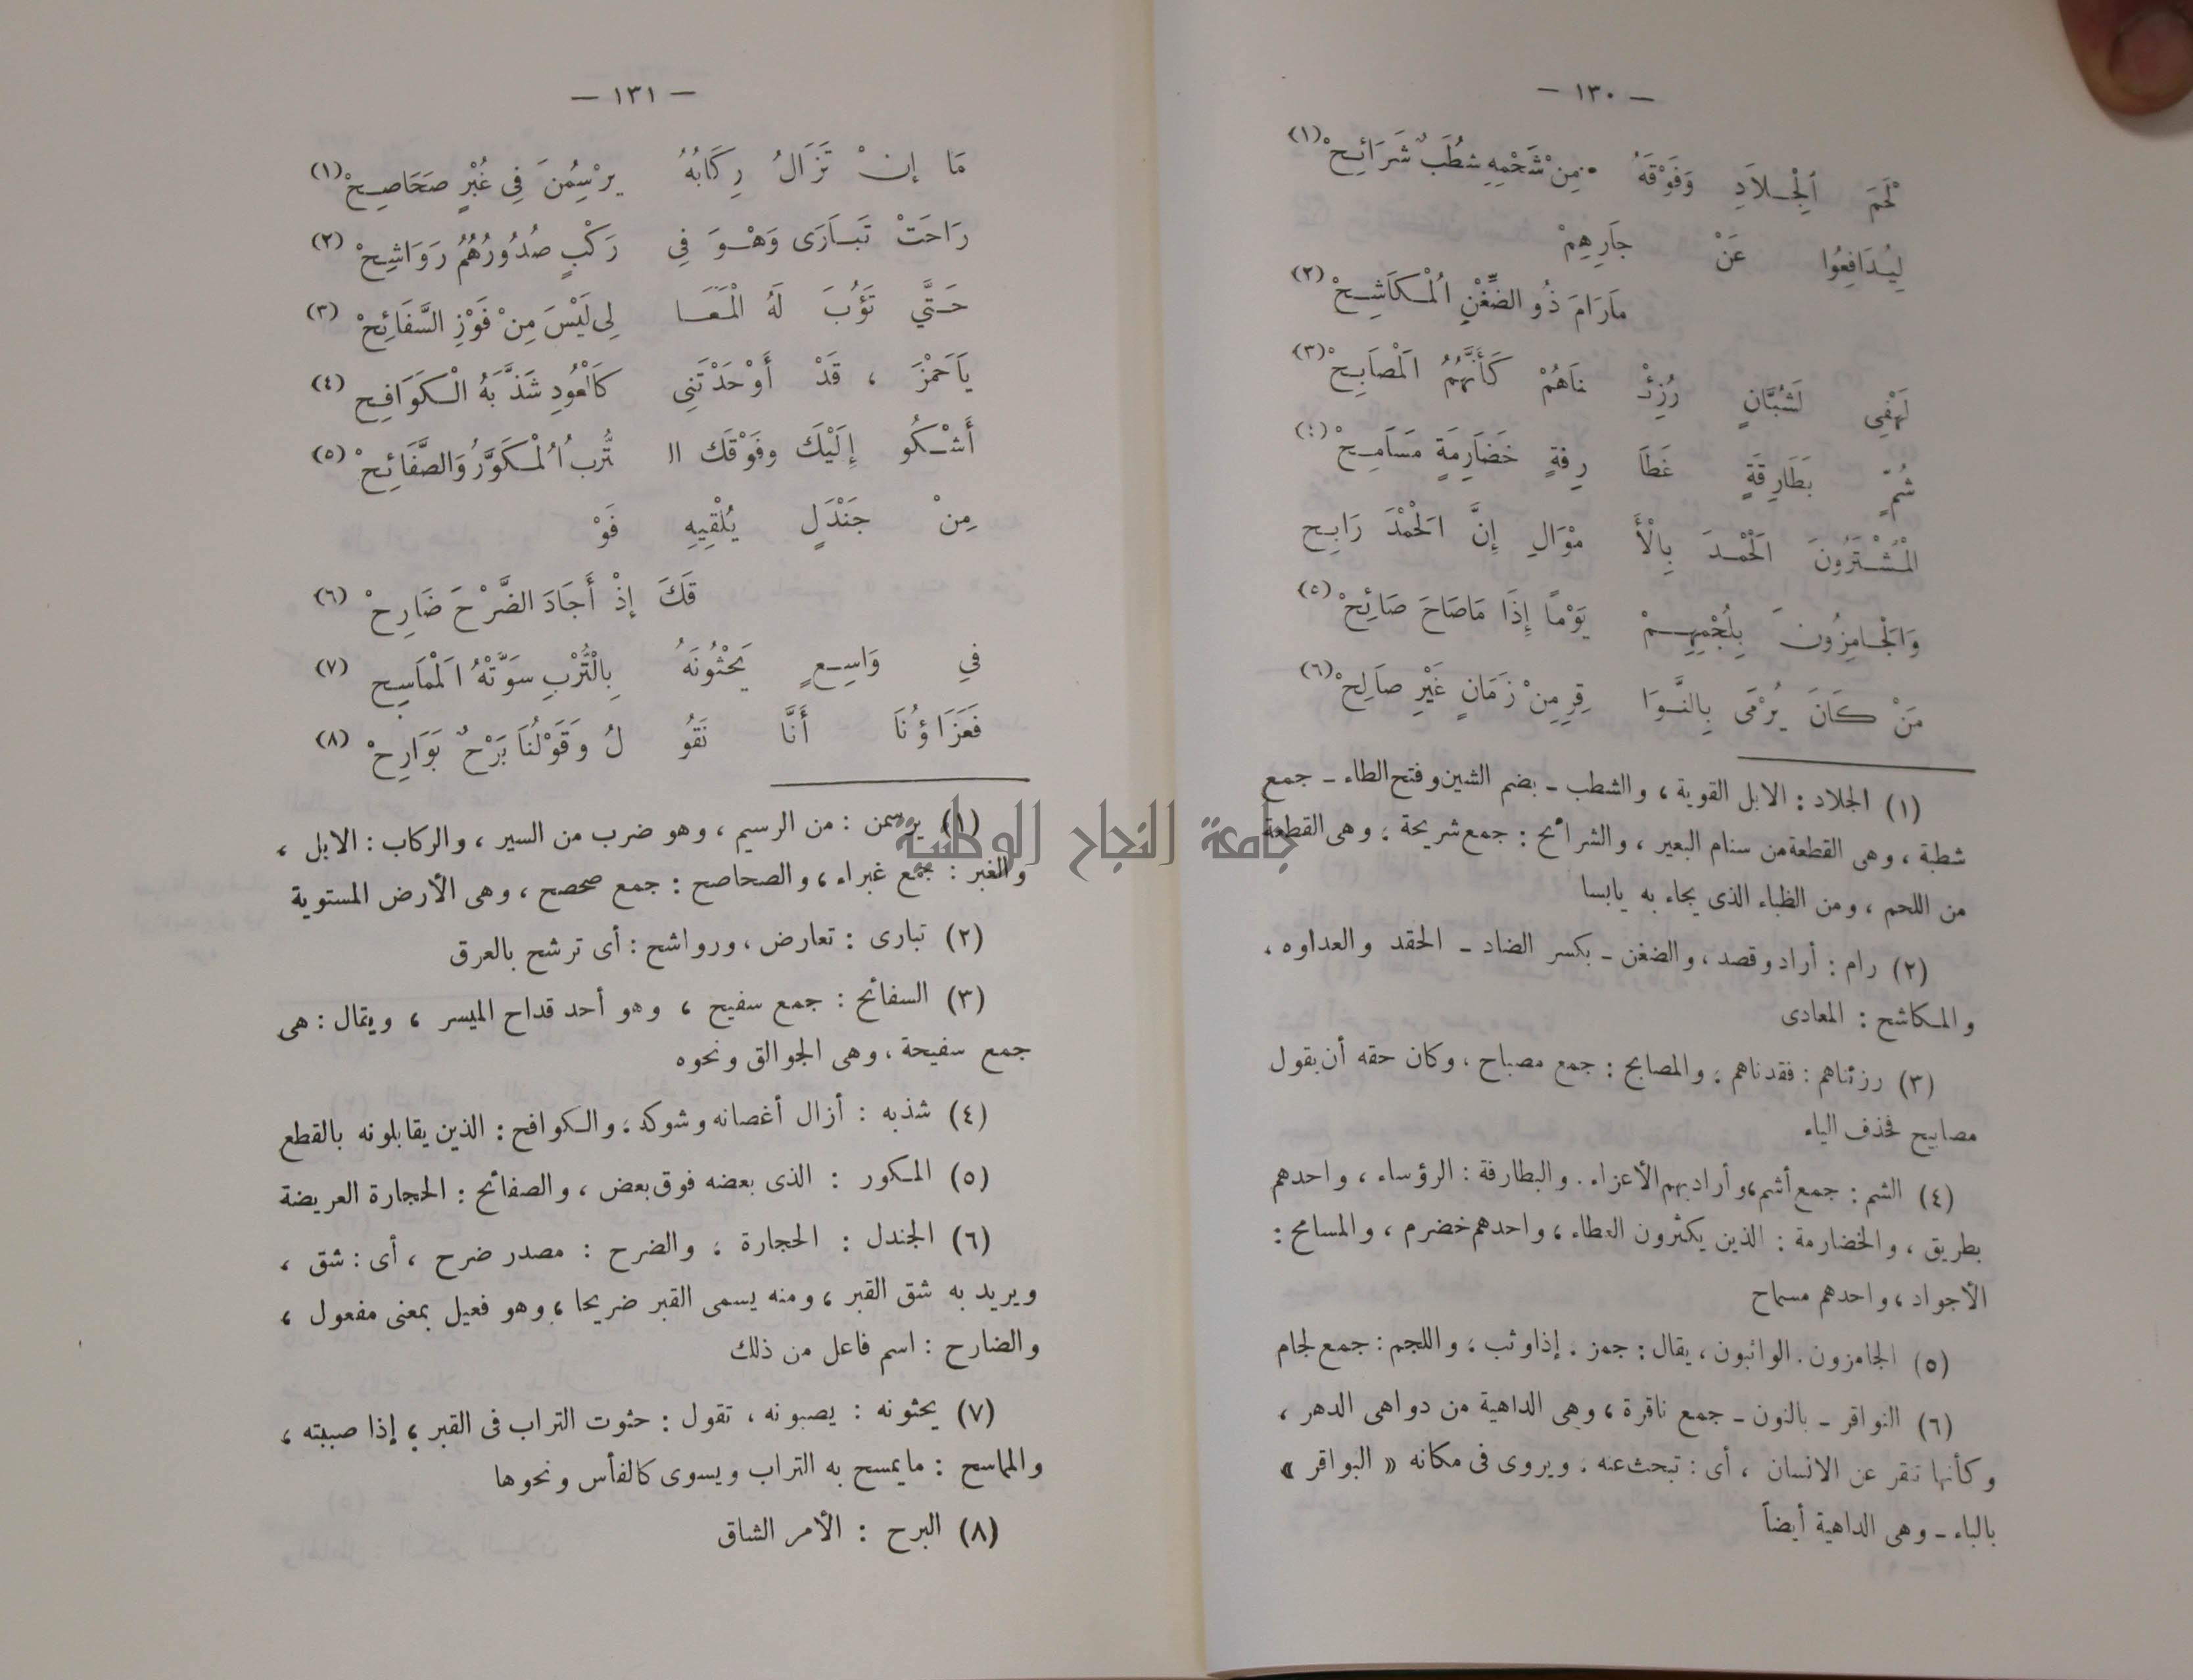 — ١٣٠ —
لَحْمَ الْجِلَادِ وَفَوْقَهُ مِنْ شَحْمِهِ شُطَبٌ شَرَائِحْ (١)
لِيُدَافِعُوا عَنْ جَارِهِمْ
مَارَامَ ذُو الضِّغْنِ الْمُكَاشِحْ (٢)
لَهْفِى لَشُبَّانٍ رُزِئْ نَاهُمْ كَأَنَّهُمُ الْمَصَابِحْ (٣)
شُمٍّ بَطَارِقَةٍ غَطَا رِفَةٍ خَضَارِمَةٍ مَسَامِحْ (٤)
الْمُشْتَرُونَ الْحَمْدَ بِالْأَ مْوَالِ إِنَّ الْحَمْدَ رَابِح
وَالْجَامِزُونَ بِلُجْمِهِمْ يَوْمًا إِذَا مَاصَاحَ صَائِحْ (٥)
مَنْ كَانَ يُرْمَى بِالنَّوَا قِرِ مِنْ زَمَانٍ غَيْرِ صَالِحْ (٦)
(١) الجلاد : الابل القوية ، والشطب ـ بضم الشين وفتح الطاء ـ جمع
شطبة ، وهى القطعة من سنام البعير ، والشرائح : جمع شريحة ، وهى القطعة
من اللحم ، ومن الظباء الذى يجاء به يابسا
(٢) رام : أراد وقصد ، والضغن ـ بكسر الضاد ـ الحقد والعداوه ،
والمكاشح : المعادى
(٣) رزئناهم : فقدناهم ، والمصابح : جمع مصباح ، وكان حقه أن يقول
مصابيح فحذف الياء
(٤) الشم : جمع أشم ، وأراد بهم الأعزاء . والبطارقة : الرؤساء ، واحدهم
بطريق ، والخضارمة : الذين يكثرون العطاء ، واحدهم خضرم ، والمسامح :
الأجواد ، واحدهم مسماح
(٥) الجامزون . الواثبون ، يقال : جمز . إذا وثب ، واللجم : جمع لجام
(٦) النواقر ـ بالنون ـ جمع ناقرة ، وهى الداهية من دواهى الدهر ،
وكأنها تنقر عن الانسان ، أى : تبحث عنه . ويروى فى مكانه « البواقر »
بالباء ـ وهى الداهية أيضاً
— ١٣١ —
مَا إِنْ تَزَالُ رِكَابُهُ يَرْسِمُنَ فِى غُبْرٍ صَحَاصِحْ (١)
رَاحَتْ تَبَارَى وَهْوَ فِى رَكْبٍ صُدُورُهُمُ رَوَاشِحْ (٢)
حَتَّى تَؤُبَ لَهُ الْمَعَا لِى لَيْسَ مِنْ فَوْزِ السَّفَائِحْ (٣)
يَاحَمْزَ ، قَدْ أَوْحَدْتَنِى كَالْعُودِ شَذَّبَهُ الْكَوَافِح (٤)
أَشْكُو إِلَيْكَ وَفَوْقَكَ ال تُّرْبُ الْمُكَوَّرُ وَالصَّفَائِحْ (٥)
مِنْ جَنْدَلٍ يُلْقِيهِ فَوْ
قَكَ إِذْ أَجَادَ الضَّرْحَ ضَارِحْ (٦)
فِي وَاسِعٍ يَحْثُونَهُ بِالتُّرْبِ سَوَّتْهُ الْمَمَاسِح (٧)
فَعَزَاؤُنَا أَنَّا نَقُو لُ وَقَوْلُنَا بَرْحٌ بَوَارِحْ (٨)
(١) يرسمن : من الرسيم ، وهو ضرب من السير ، والركاب : الابل ،
والغبر : جمع غبراء ، والصحاصح : جمع صحصح ، وهى الأرض المستوية
(٢) تبارى : تعارض ، ورواشح : أى ترشح بالعرق
(٣) السفائح : جمع سفيح ، وهو أحد قداح الميسر ، ويقال : هى
جمع سفيحة ، وهى الجوالق ونحوه
(٤) شذبه : أزال أغصانه وشوكه ، والكوافح : الذين يقابلونه بالقطع
(٥) المكور : الذى بعضه فوق بعض ، والصفائح : الحجارة العريضة
(٦) الجندل : الحجارة ، والضرح : مصدر ضرح ، أى : شق ،
ويريد به شق القبر ، ومنه يسمى القبر ضريحا ، وهو فعيل بمعنى مفعول ،
والضارح : اسم فاعل من ذلك
(٧) يحثونه : يصبونه ، تقول : حثوت التراب فى القبر ، إذا صببته ،
والمماسح : مايمسح به التراب ويسوى كالفأس ونحوها
(٨) البرح : الأمر الشاق
جامعة النجاح الوطنية